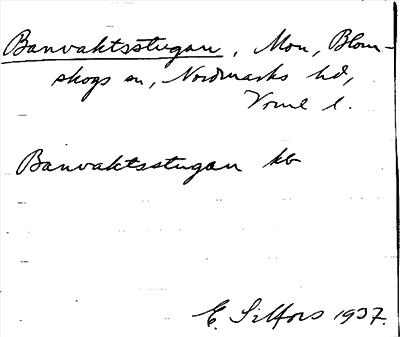 Banvaktsstugan, Mon, Blom-
skogs sn, Nordmarks hd,
Värml l.
Banvaktsstugan kb
E. Silfors 1937.